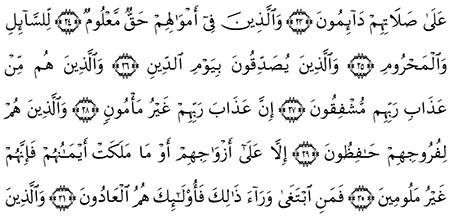 عَلَىٰ صَلَاتِهِمْ دَآئِمُونَ ﴿٢٣﴾ وَٱلَّذِينَ فِىٓ أَمْوَالِهِمْ حَقٌّ مَّعْلُومٌ ﴿٢٤﴾ لِّلسَّآئِلِ
وَٱلْمَحْرُومِ ﴿٢٥﴾ وَٱلَّذِينَ يُصَدِّقُونَ بِيَوْمِ ٱلدِّينِ ﴿٢٦﴾ وَٱلَّذِينَ هُم مِّنْ
عَذَابِ رَبِّهِم مُّشْفِقُونَ ﴿٢٧﴾ إِنَّ عَذَابَ رَبِّهِمْ غَيْرُ مَأْمُونٍ ﴿٢٨﴾ وَٱلَّذِينَ هُمْ
لِفُرُوجِهِمْ حَافِظُونَ ﴿٢٩﴾ إِلَّا عَلَىٰٓ أَزْوَاجِهِمْ أَوْ مَا مَلَكَتْ أَيْمَانُهُمْ فَإِنَّهُمْ
غَيْرُ مَلُومِينَ ﴿٣٠﴾ فَمَنِ ٱبْتَغَىٰ وَرَآءَ ذَالِكَ فَأُوْلَـٰٓئِكَ هُمُ ٱلْعَادُونَ ﴿٣١﴾ وَٱلَّذِينَ